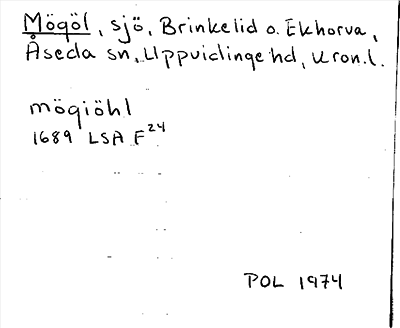 Mögöl, sjö, Brinkelid o. Ekhorva,
Åseda sn, Uppvidinge hd, Kron.l.
mögiöhl
1689 LSA F24
POL 1974